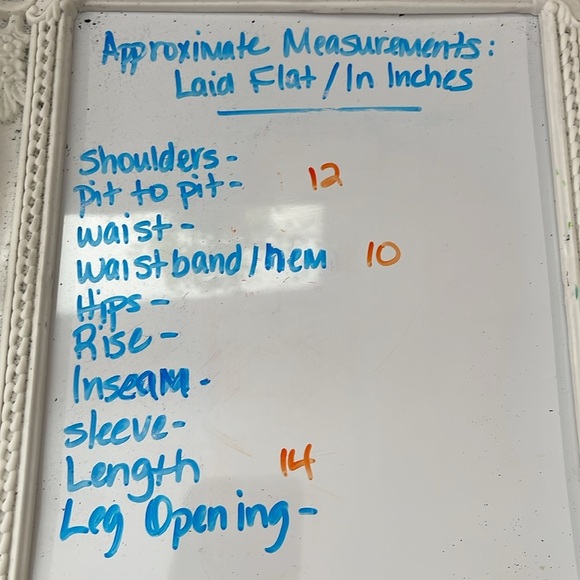 Approximate Measurements:
Laid Flat / In Inches
Shoulders-
pit to pit- 12
waist-
waistband/hem 10
Hips-
Rise-
Inseam-
sleeve-
Length 14
Leg Opening-